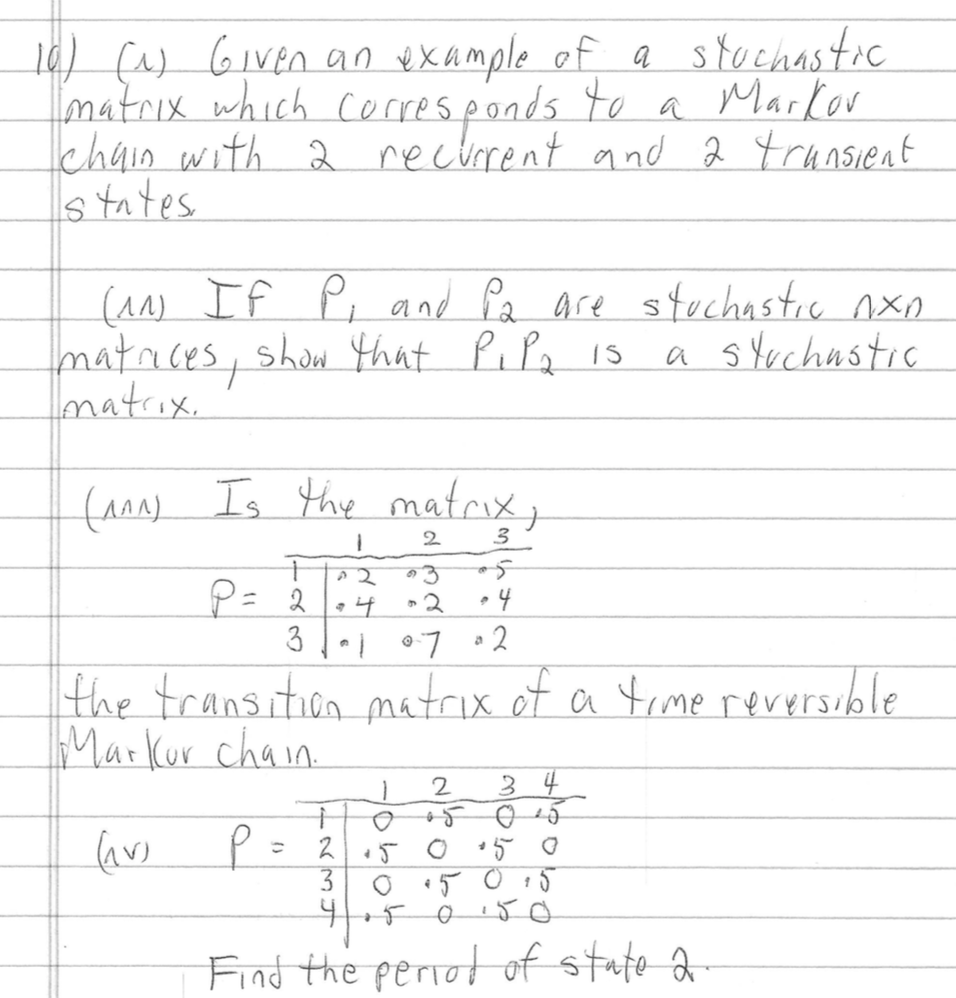 10) (i) Given an example of a stochastic
matrix which corresponds to a Markov
chain with 2 recurrent and 2 transient
states.
(ii) If P₁ and P₂ are stochastic nxn
matrices, show that P₁P₂ is a stochastic
matrix.
(iii) Is the matrix,
1 2 3
1 .2 .3 .5
P = 2 .4 .2 .4
3 .1 .7 .2
the transition matrix of a time reversible
Markov chain.
1 2 3 4
1 0 .5 0 .5
(iv) P = 2 .5 0 .5 0
3 0 .5 0 .5
4 .5 0 .5 0
Find the period of state 2.